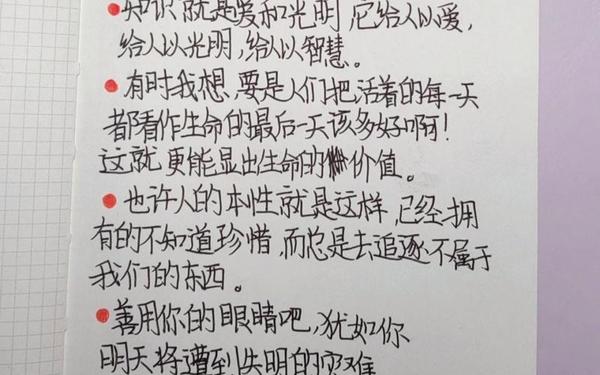 •知识就是爱和光明,它给人以爱,
给人以光明,给人以智慧。
•有时我想,要是人们把活着的每一天
都看作生命的最后一天该多好啊!
这就更能显出生命的价值。
•也许人的本性就是这样,已经拥
有的不知道珍惜,而总是去追逐不属于
我们的东西。
•善用你的眼睛吧,犹如你
明天将遭到失明的灾难